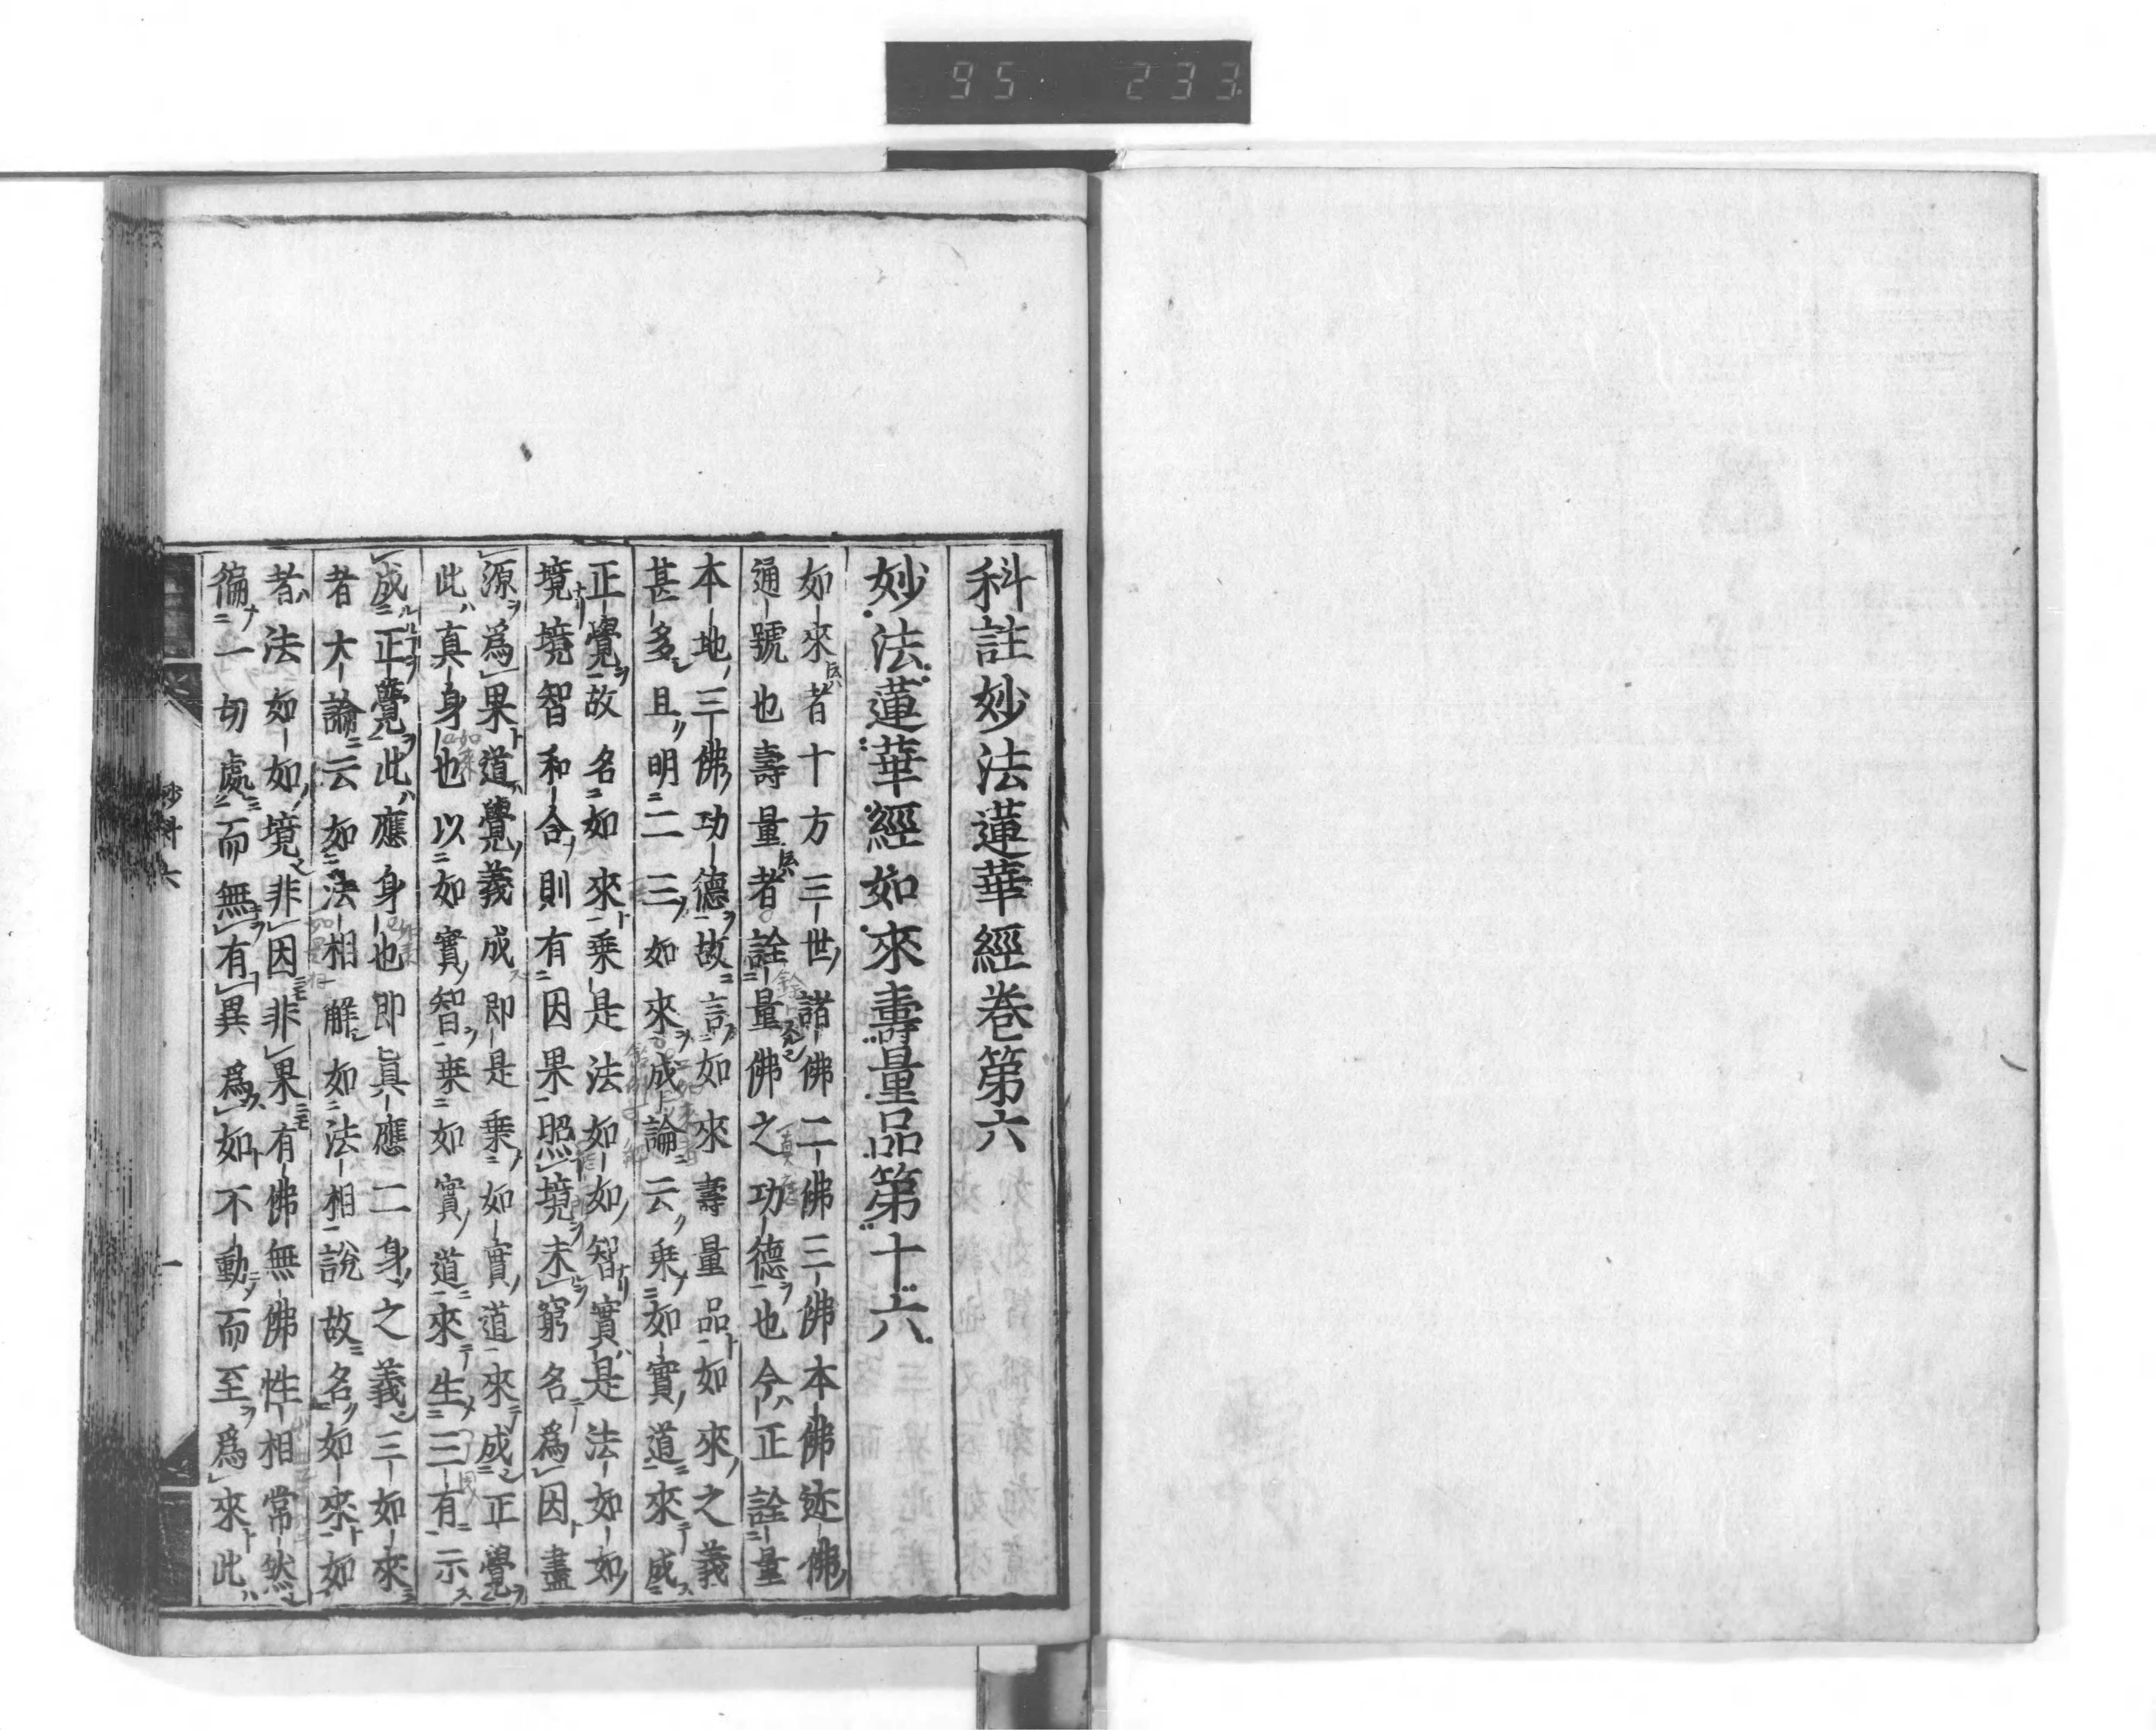 95 233
科註妙法蓮華經卷第六
妙法蓮華經如來壽量品第十六
如來者十方三世諸佛二佛三佛本佛迹佛
通號也壽量者詮量佛之功德也今正詮量
本地三佛功德故言如來壽量品如來之義
甚多且明二三如來成論云乘如實道來成
正覺故名如來乘是法如如智實是法如如
境境智和合則有因果照境未窮名爲因盡
源爲果道覺義成即是乘如實道來成正覺
此真身也以如實智乘如實道來生三有示
成正覺此應身也即真應二身之義三如來
者大論云如法相解如法相說故名如來如
者法如如境非因非果有佛無佛性相常然
徧一切處而無有異爲如不動而至爲來此
妙科六
一